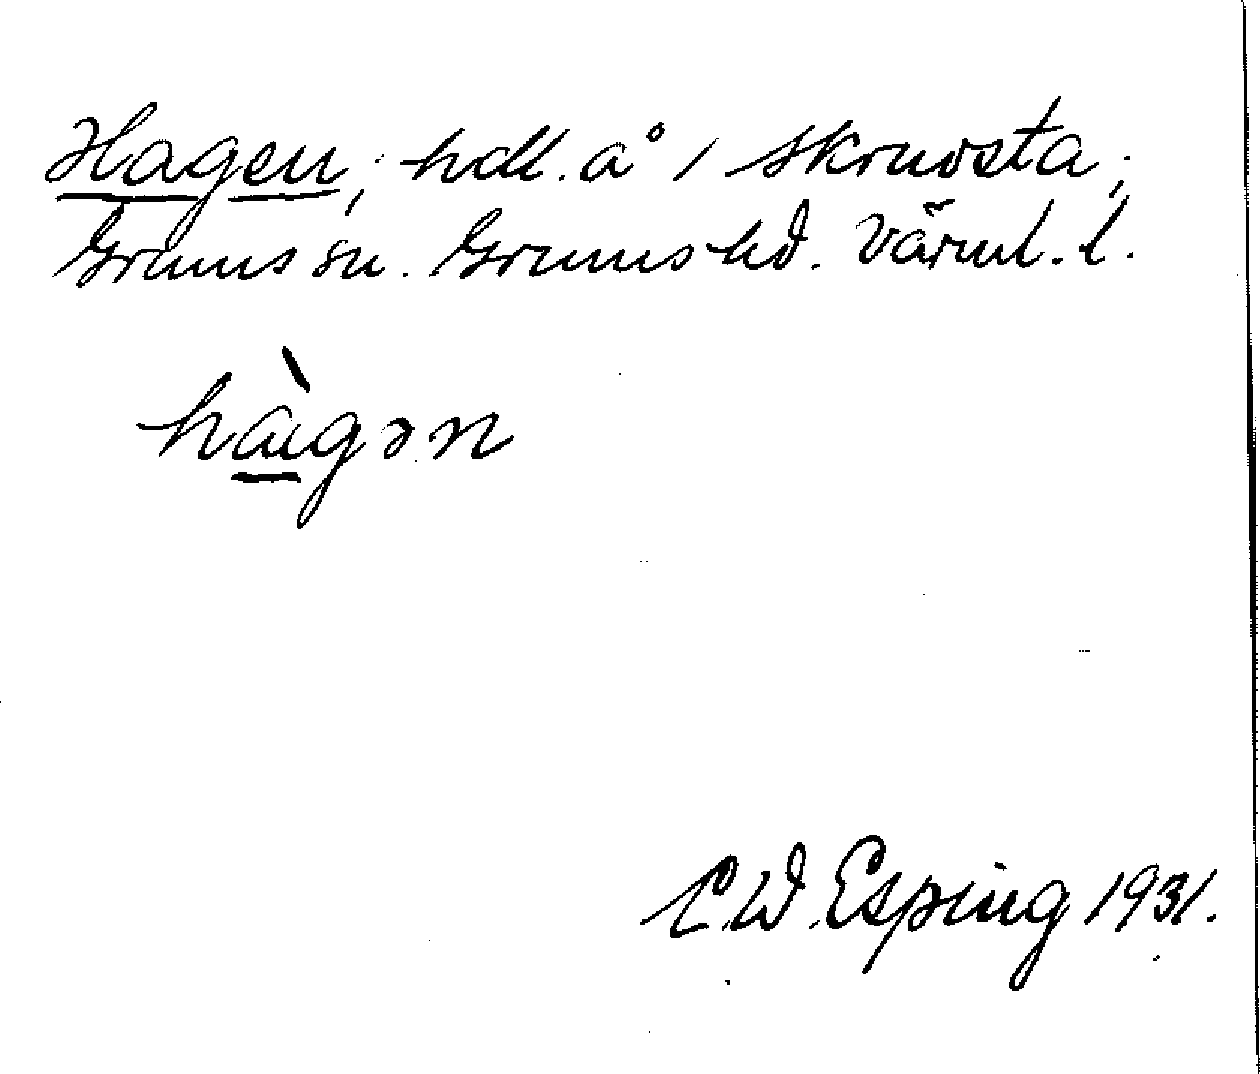 Hagen; hdl. å 1 Skruvsta;
Grums sn. Grums hd. Värml. l.
hàgən
C.W. Esping 1931.